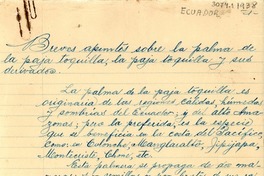 3079.1.1938
ECUADOR
Breves apuntes sobre la palma de
la paja toquilla; la paja toquilla y sus
derivados.
La palma de la paja toquilla es
originaria de las regiones cálidas, húmedas
y sombrías del Ecuador; y del alto Ama-
zonas; pero la preferida, es la especie
que se beneficia en la costa del Pacífico,
como: en Colonche, Manglaralto, Jipijapa,
Montecristi, Chone, etc.
Esta palmera se propaga de dos ma-